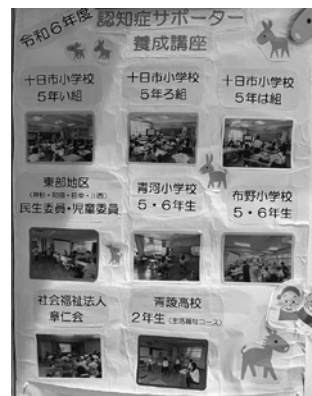 令和6年度 認知症サポーター
養成講座
十日市小学校
5年い組
十日市小学校
5年ろ組
十日市小学校
5年は組
東部地区
民生委員・児童委員
青河小学校
5・6年生
布野小学校
5・6年生
社会福祉法人
章仁会
青陵高校
2年生（生活福祉コース）